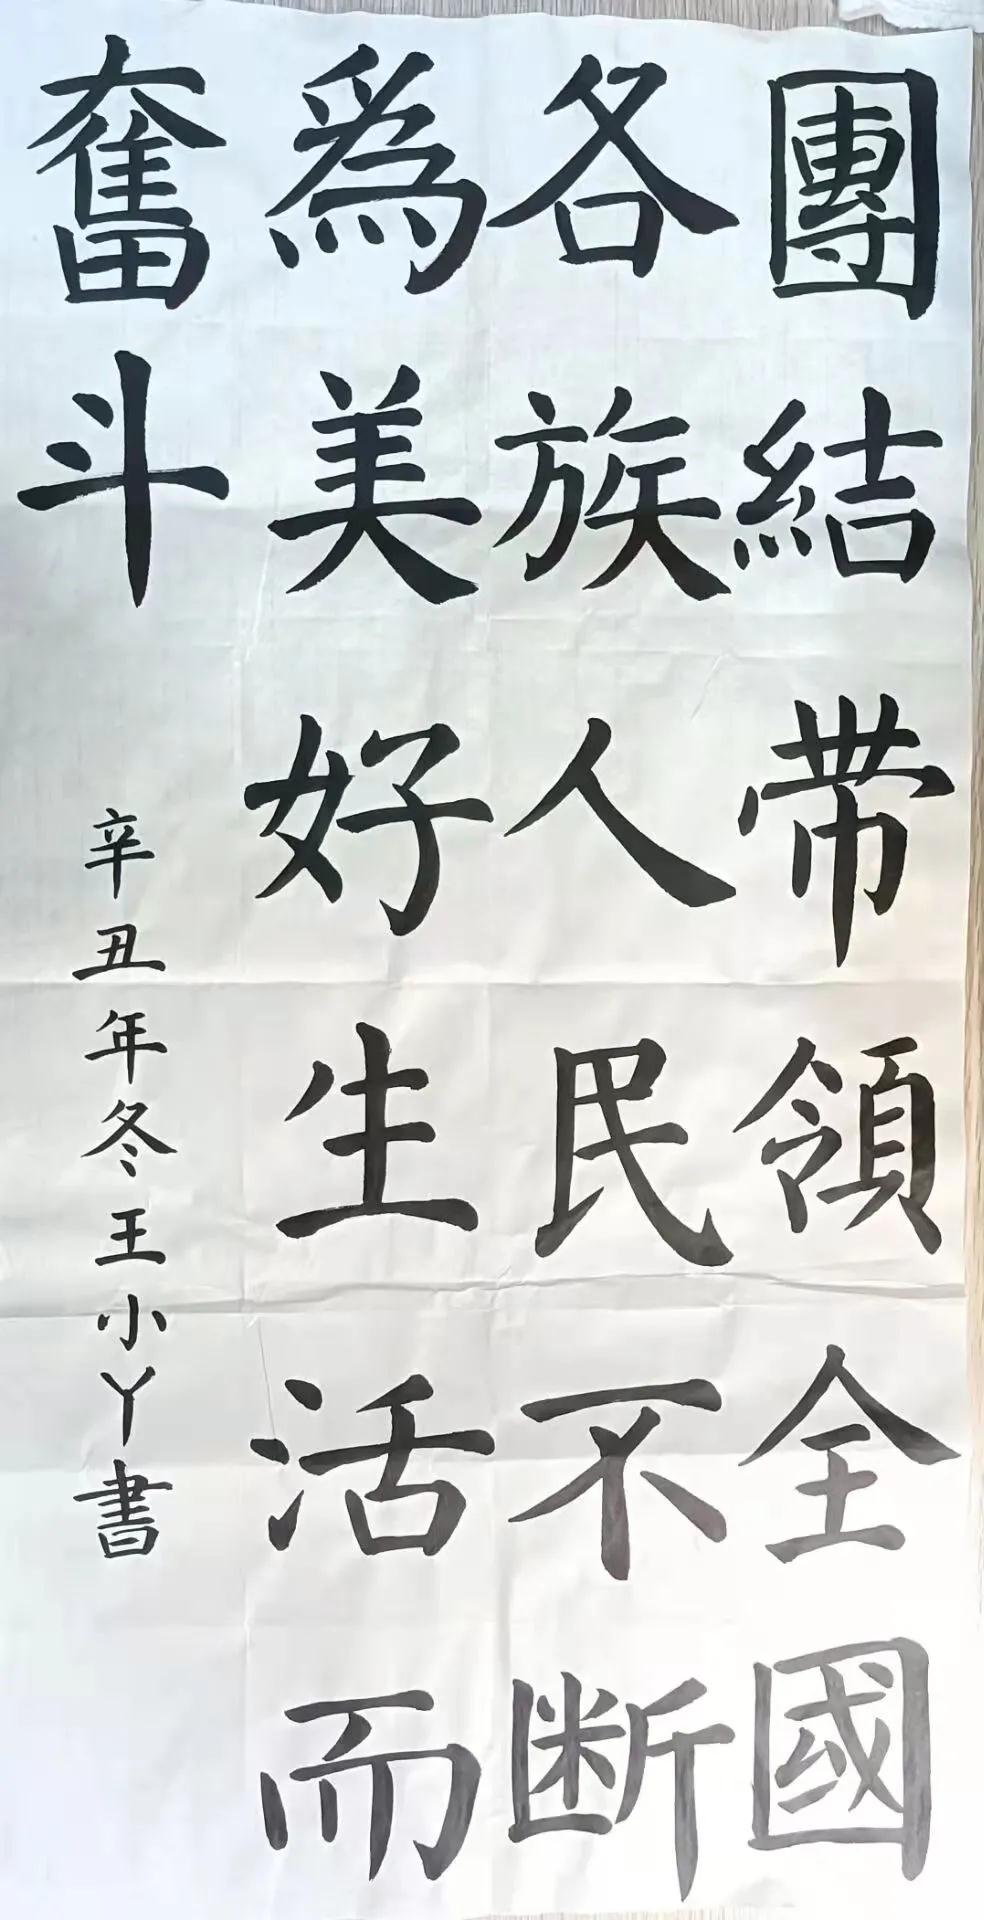 團結带領全國
各族人民不断
爲美好生活而
奮斗
辛丑年冬王小丫書